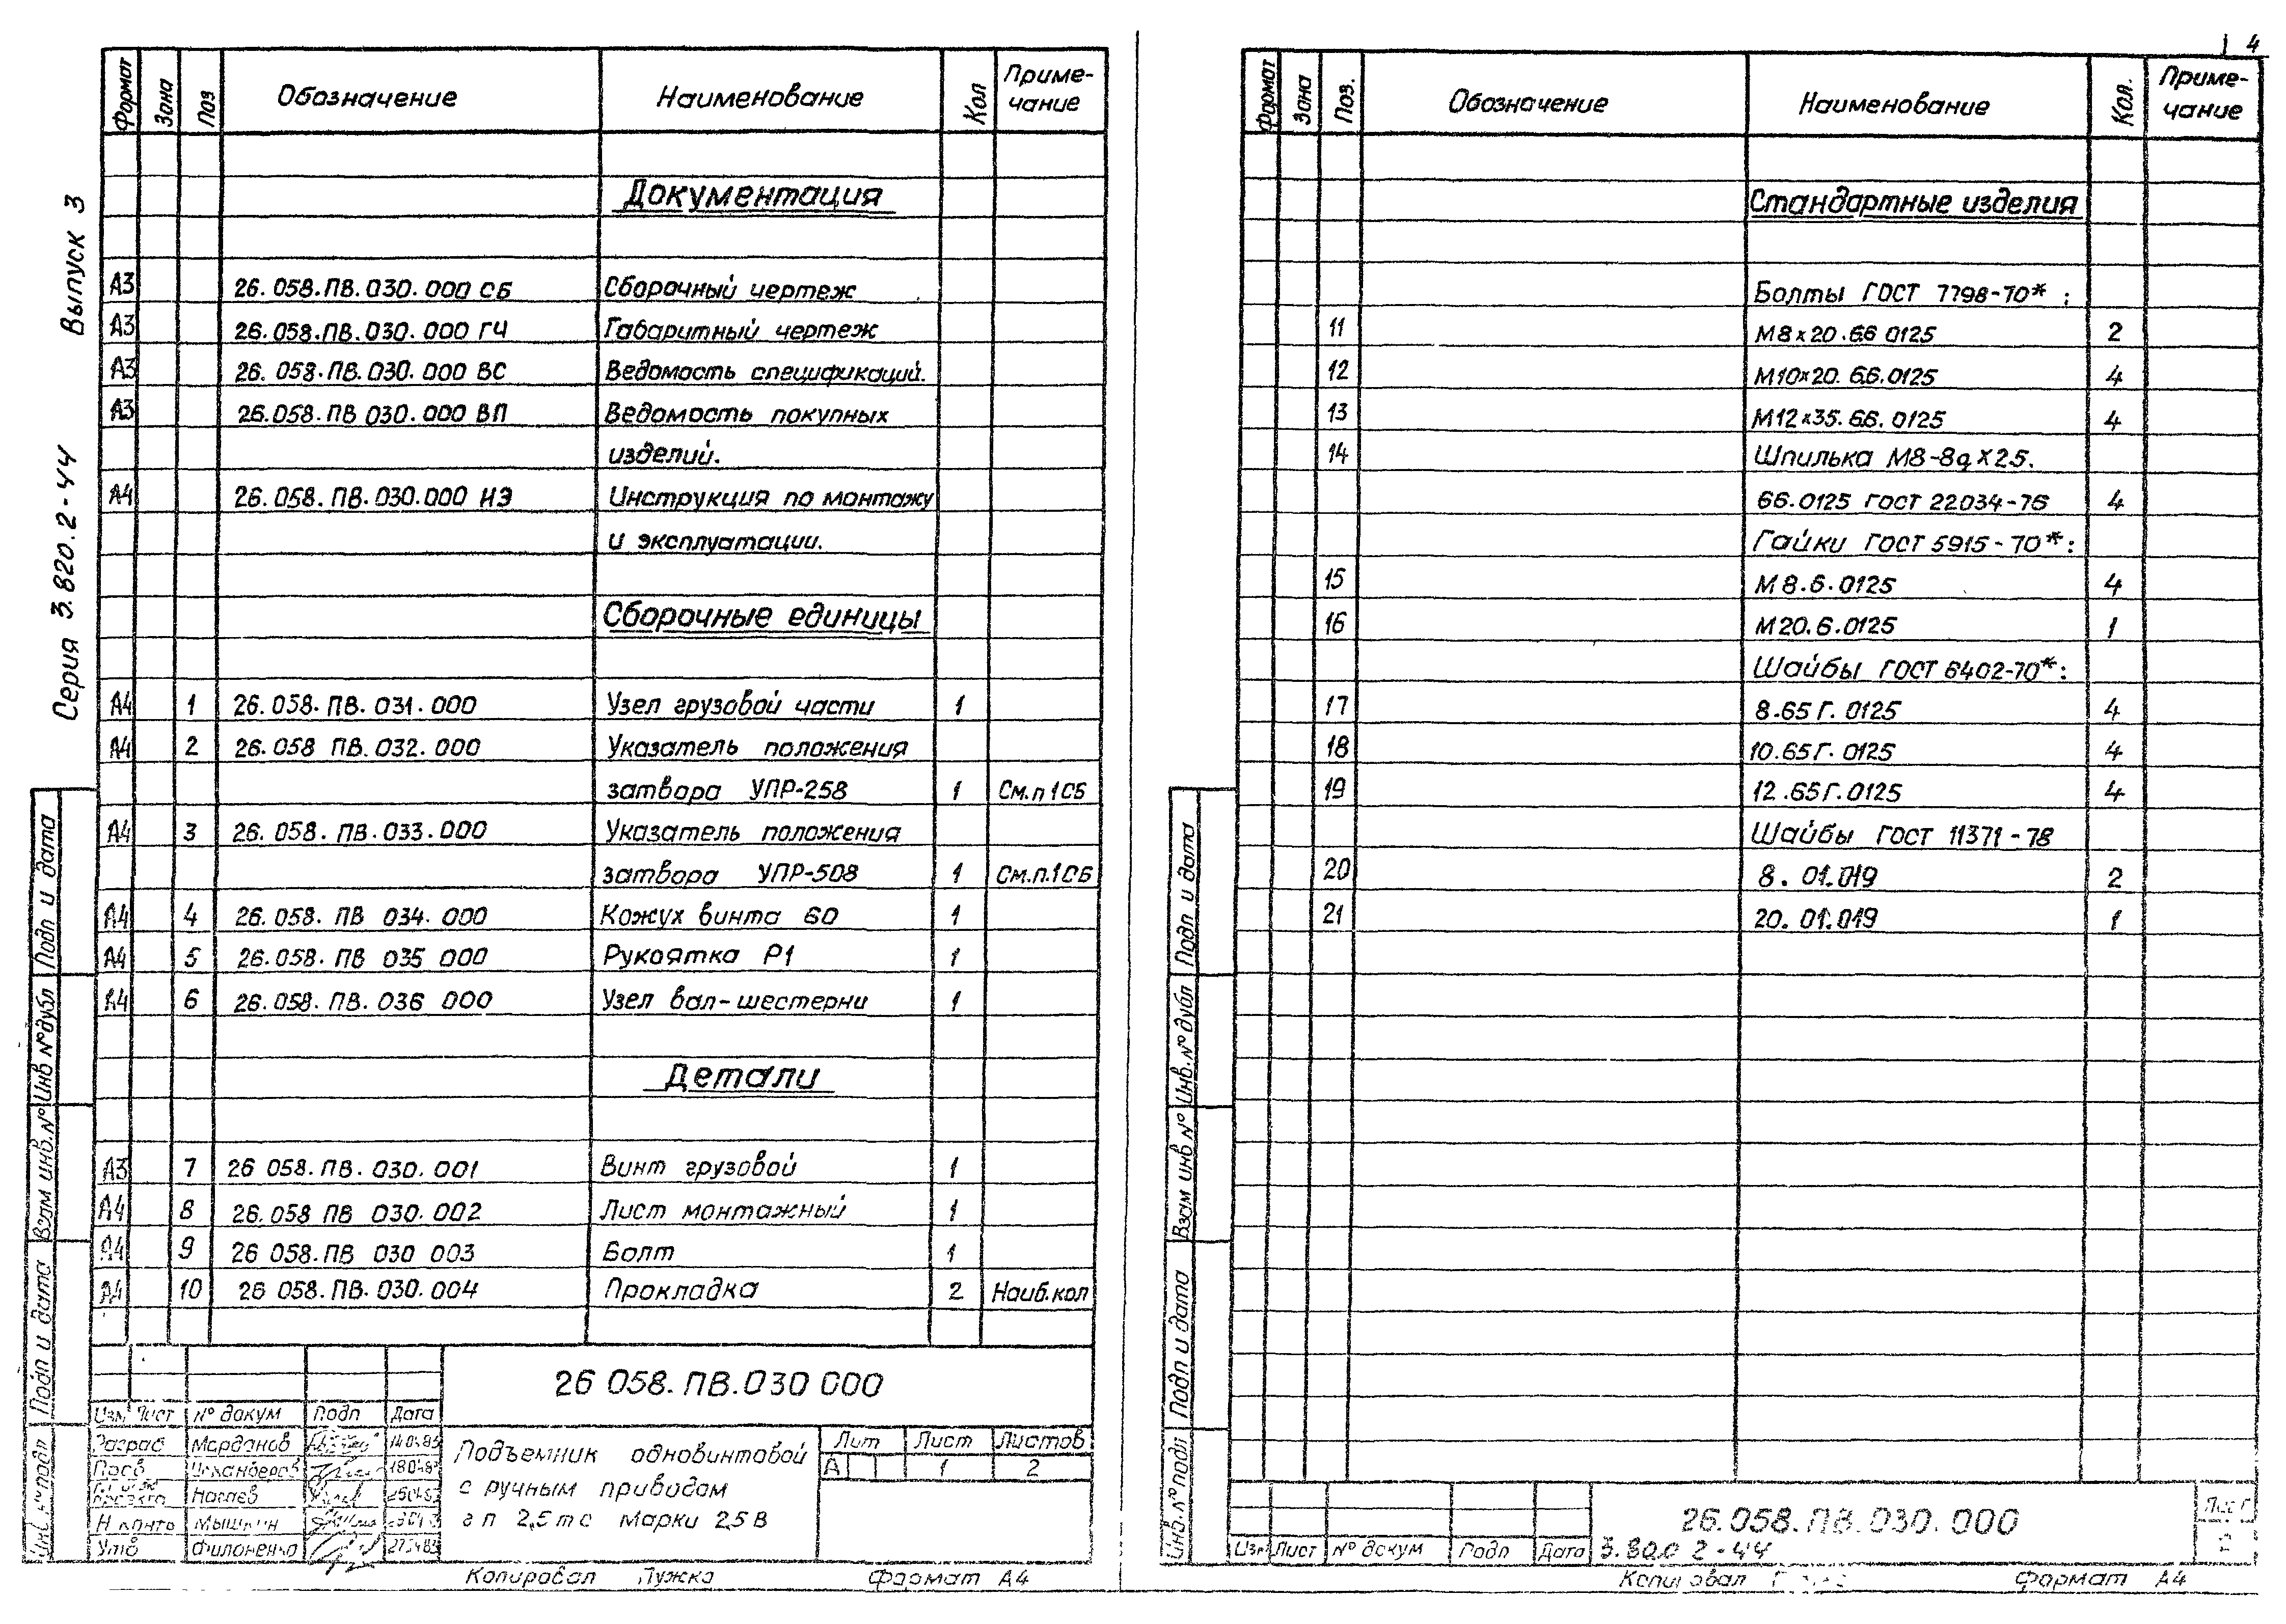 Серия 3.820.2-44 Выпуск 3
Формат Зона Поз Обозначение Наименование Кол Приме-
чание
Документация
А3 26.058.ПВ.030.000 СБ Сборочный чертеж
А3 26.058.ПВ.030.000 ГЧ Габаритный чертеж
А3 26.058.ПВ.030.000 ВС Ведомость спецификаций.
А3 26.058.ПВ 030.000 ВП Ведомость покупных
изделий.
А4 26.058.ПВ.030.000 ИЭ Инструкция по монтажу
и эксплуатации.
Сборочные единицы
А4 1 26.058.ПВ.031.000 Узел грузовой части 1
А4 2 26.058 ПВ.032.000 Указатель положения
затвора УПР-258 1 См.п 1СБ
А4 3 26.058.ПВ.033.000 Указатель положения
затвора УПР-508 1 См.п.1СБ
А4 4 26.058.ПВ 034.000 Кожух винта 60 1
А4 5 26.058.ПВ 035 000 Рукоятка Р1 1
А4 6 26.058.ПВ.036 000 Узел вал-шестерни 1
Детали
А3 7 26 058.ПВ.030.001 Винт грузовой 1
А4 8 26.058 ПВ 030.002 Лист монтажный 1
А4 9 26 058.ПВ 030 003 Болт 1
А4 10 26 058.ПВ.030.004 Прокладка 2 Наиб.кол
26 058.ПВ.030 000
Изм Лист № докум Подп Дата
Разраб Марданов 14.04.83
Пров Искандеров 18.04.83
Нагаев
Н контр Мышкин
Утв Филоненко
Подъемник одновинтовой
с ручным приводом
г п 2,5тс марки 2,5В
Лит Лист Листов
А 1 2
Копировал Лужко Формат А4
Подп и дата
Инв №дубл
Взам инв.№
Подп и дата
Инв № подл
4
Формат Зона Поз. Обозначение Наименование Кол. Приме-
чание
Стандартные изделия
Болты ГОСТ 7798-70*:
11 М8х20.66 0125 2
12 М10х20.66.0125 4
13 М12х35.66.0125 4
14 Шпилька М8-8gХ25.
66.0125 ГОСТ 22034-76 4
Гайки ГОСТ 5915-70*:
15 М8.6.0125 4
16 М20.6.0125 1
Шайбы ГОСТ 6402-70*:
17 8.65Г.0125 4
18 10.65Г.0125 4
19 12.65Г.0125 4
Шайбы ГОСТ 11371-78
20 8.01.019 2
21 20.01.019 1
26.058.ПВ.030.000
Лист
2
Изм Лист № докум Подп Дата 3.820 2-44
Копировал Формат А4
Подп и дата
Инв.№ дубл
Взам инв №
Подп и дата
Инв.№ подл